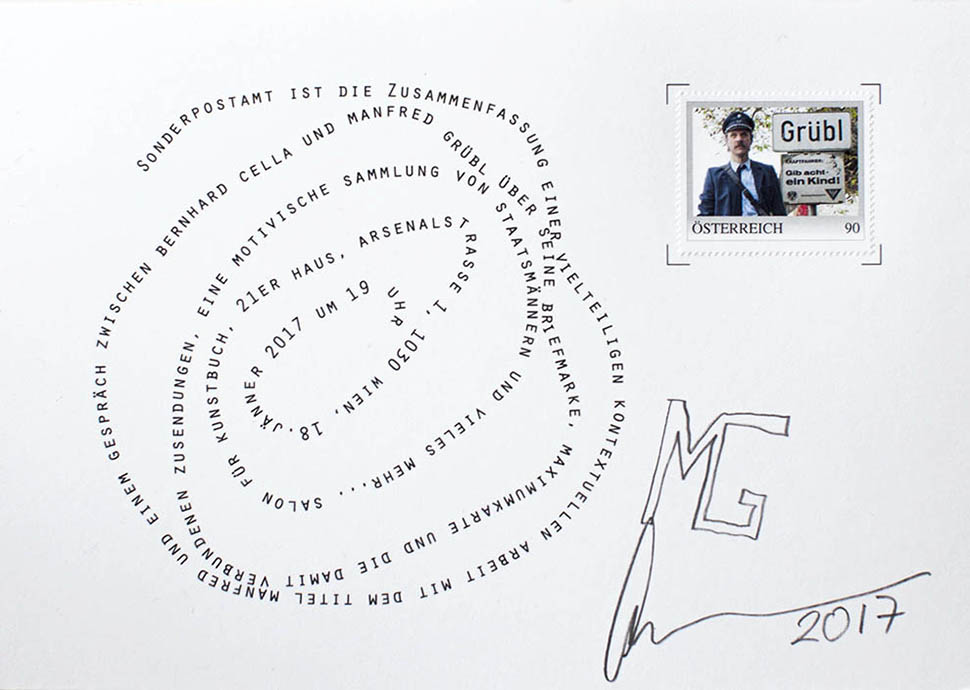 SONDERPOSTAMT IST DIE ZUSAMMENFASSUNG EINER VIELTEILIGEN KONTEXTUELLEN ARBEIT MIT DEM TITEL MANFRED UND EINEM GESPRÄCH ZWISCHEN BERNHARD CELLA UND MANFRED GRÜBL ÜBER SEINE BRIEFMARKE, MAXIMUMKARTE UND DIE DAMIT VERBUNDENEN ZUSENDUNGEN, EINE MOTIVISCHE SAMMLUNG VON STAATSMÄNNERN UND VIELES MEHR... SALON FÜR KUNSTBUCH, 21ER HAUS, ARSENALSTRASSE 1, 1030 WIEN, 18.JÄNNER 2017 UM 19 UHR
Grübl
KRAFTFAHRER:
Gib acht-
ein Kind!
ÖSTERREICH 90
MG
2017